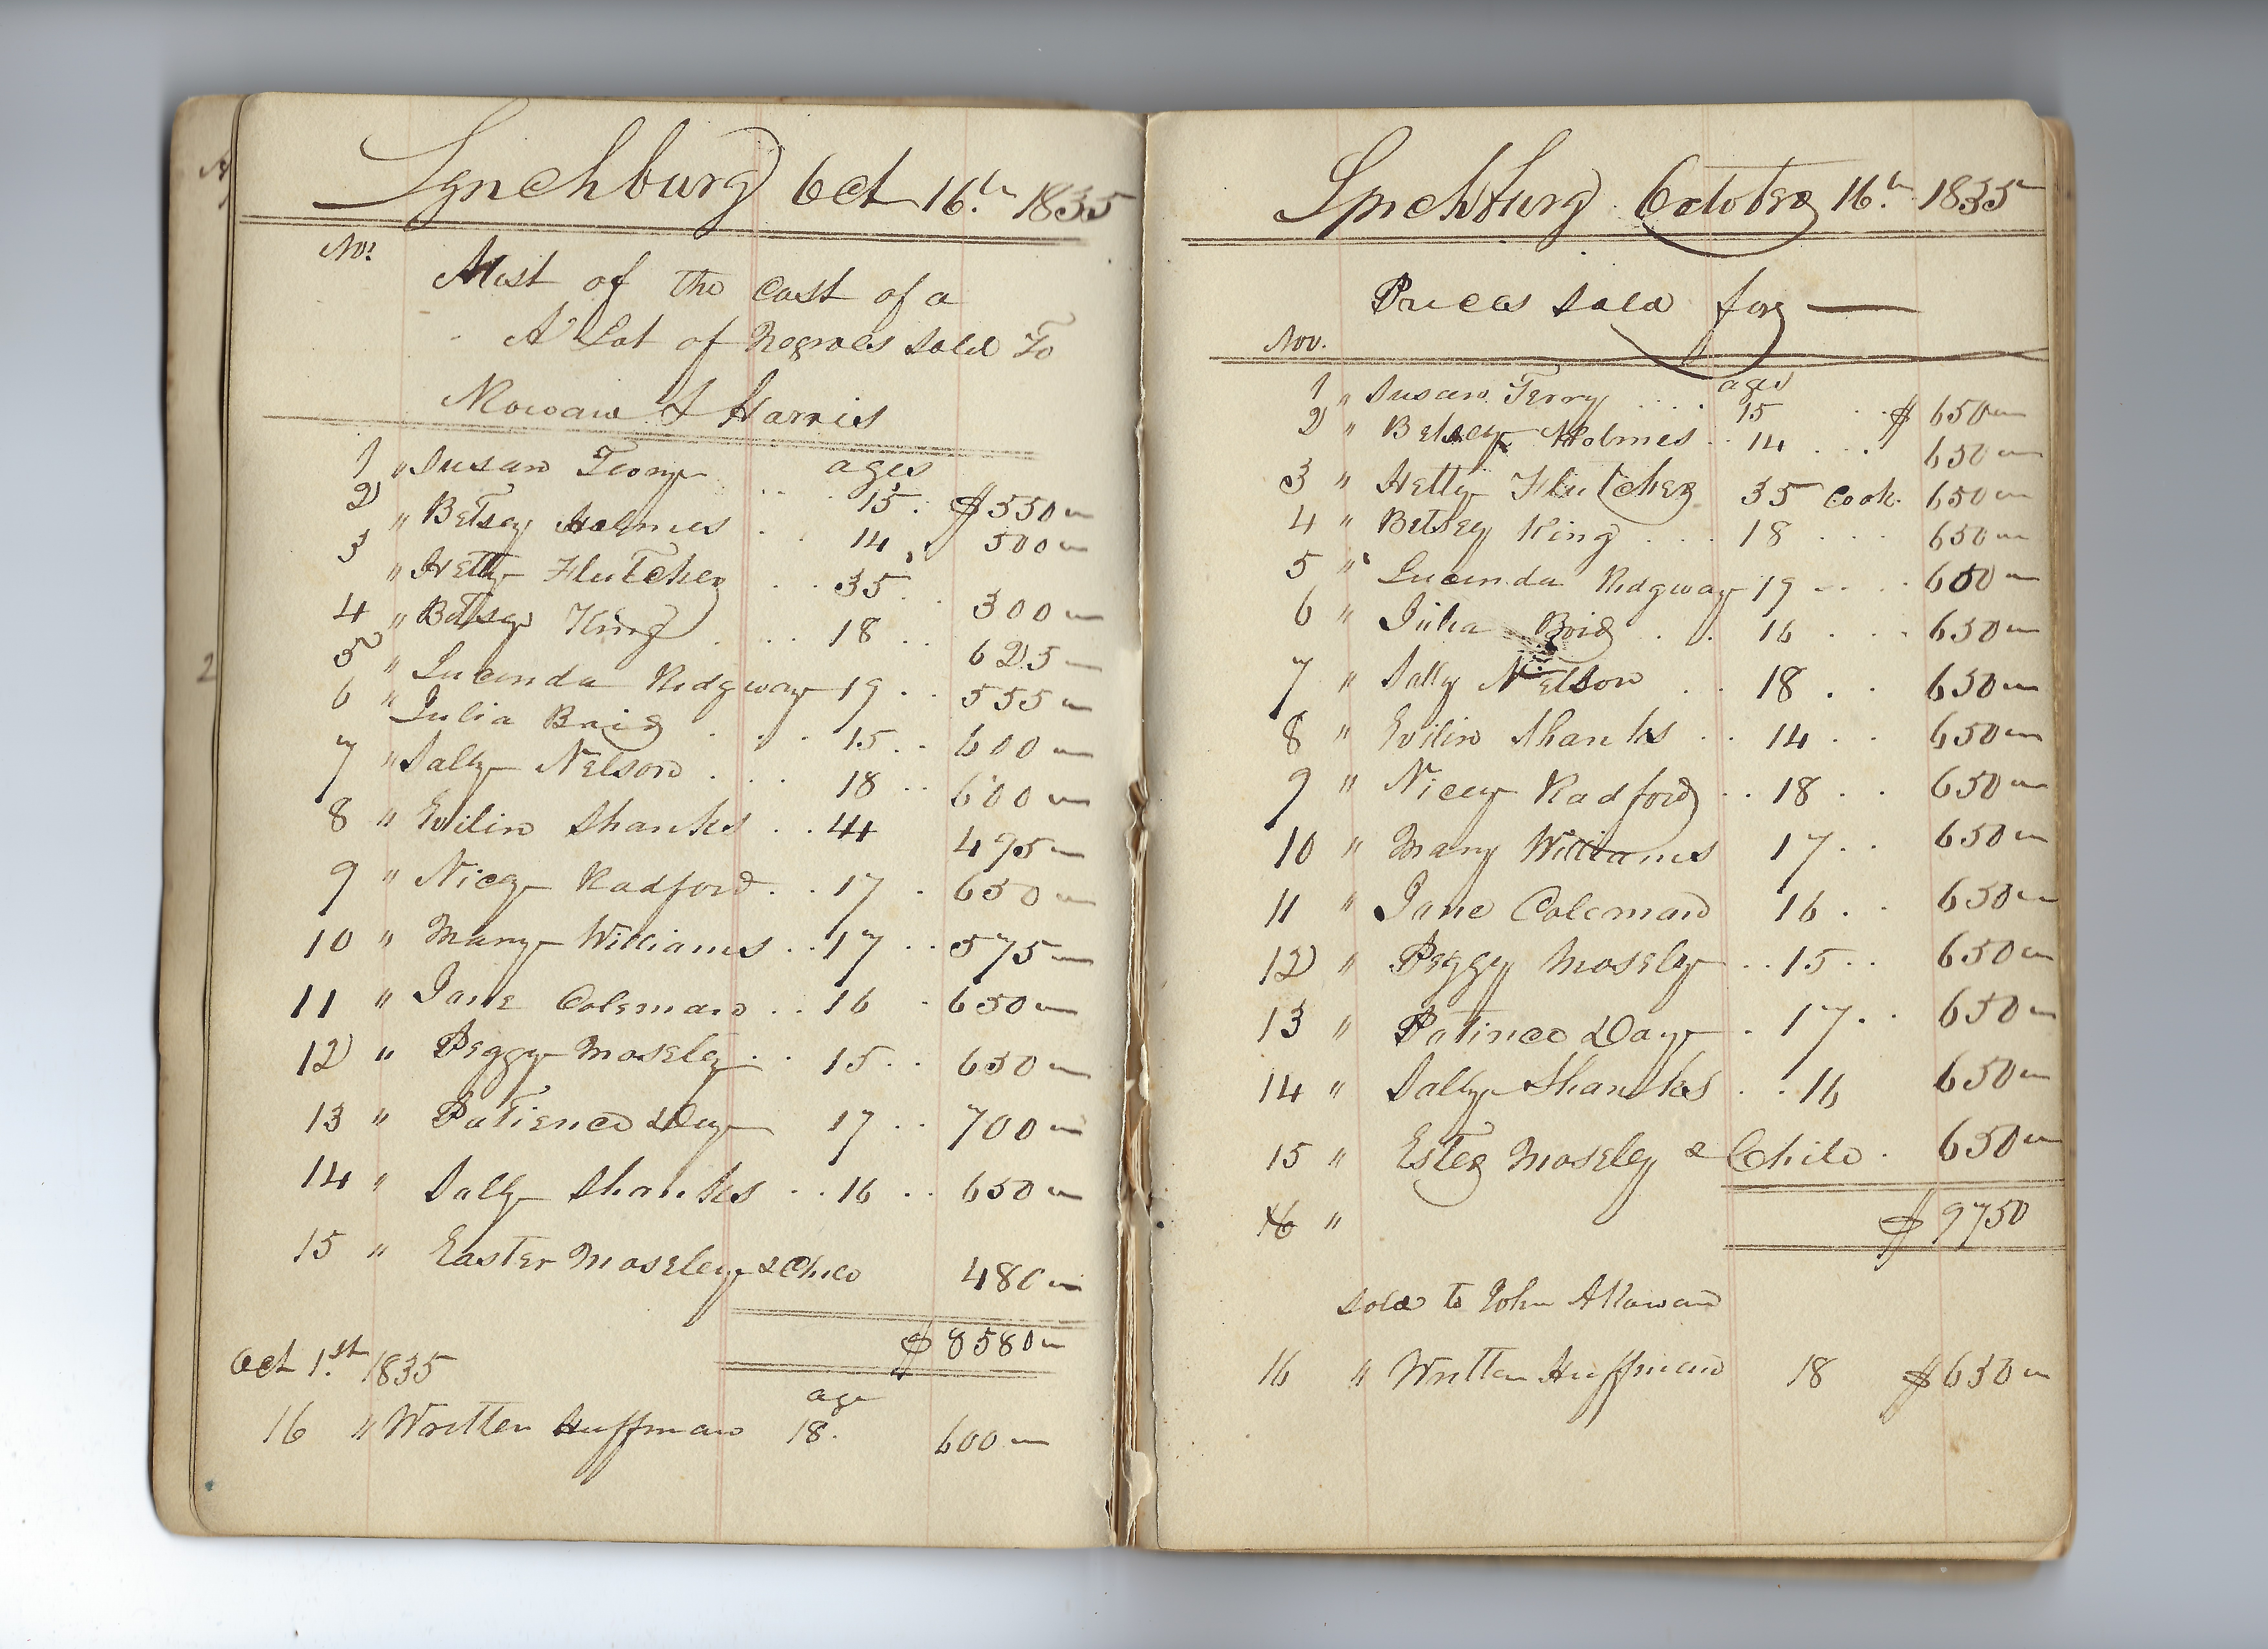 Lynchburg Oct 16th 1835
No.
Mist of the Cost of a
A Lot of Negroes Sold To
& Harris
ages
1 " Susan Terry 15 $550
2 " Betsey Holmes 14 500
3 " Hetty Flutcher 35 300
4 " Betsey King 18 625
5 " Lucinda Ridgway 19 555
6 " Julia Boid 15 600
7 " Sally Nelson 18 600
8 " Evilin Shanks 14 495
9 " Nicey Radford 17 650
10 " Mary Williams 17 575
11 " Jane Coleman 16 650
12 " Peggy Mosely 15 650
13 " Patience Day 17 700
14 " Sally Shanks 16 650
15 " Easter Moseley & Child 480
$8580
Oct 1st 1835
age
16 " Written Huffman 18. 600
Lynchburg October 16th 1835
Prices Sold for
Nov.
ages
1 " Susan Terry 15 $650
2 " Betsey Holmes 14 650
3 " Hetty Flutcher 35 Cook 650
4 " Betsey King 18 650
5 " Lucinda Ridgway 19 650
6 " Julia Boid 16 650
7 " Sally Nelson 18 650
8 " Evilin Shanks 14 650
9 " Nicey Radford 18 650
10 " Mary Williams 17 650
11 " Jane Coleman 16 650
12 " Peggy Mosely 15 650
13 " Patince Day 17 650
14 " Sally Shanks 16 650
15 " Ester Moseley & Child 650
16 " $9750
Sold to John
16 " Written Huffman 18 $650